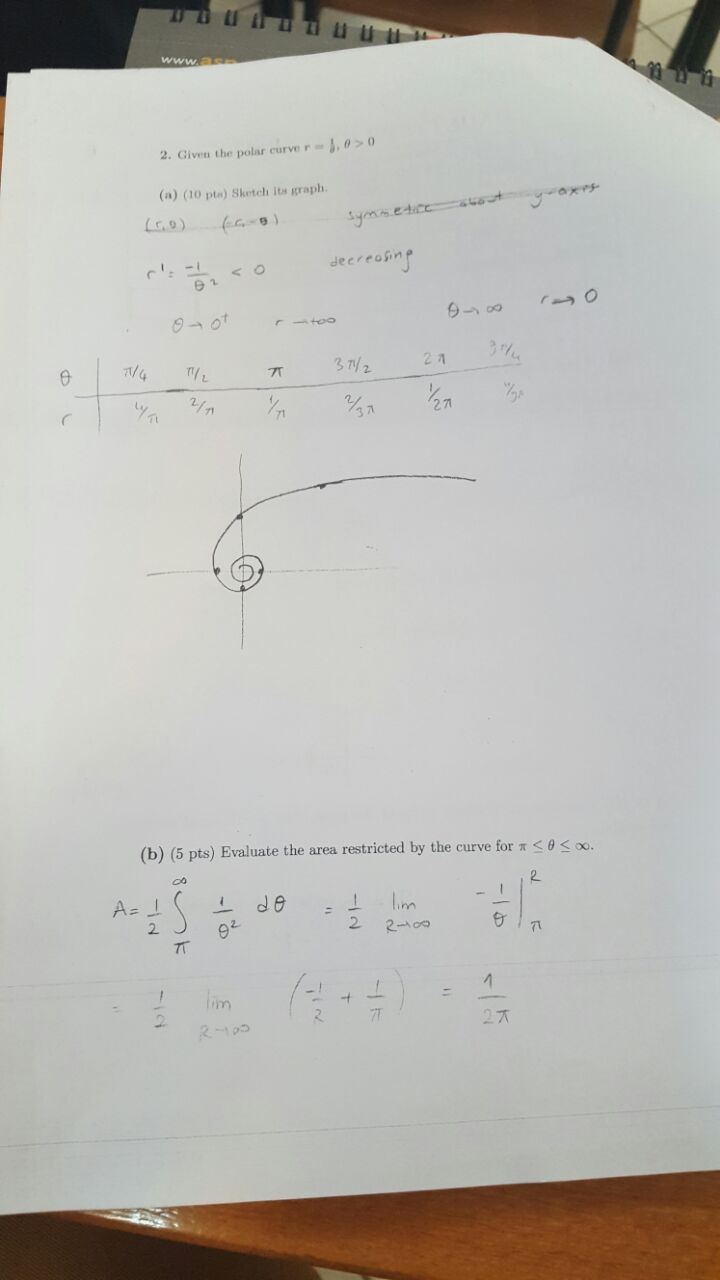 www.asp
2. Given the polar curve r = 1/θ, θ > 0
(a) (10 pts) Sketch its graph.
(r,θ) (-r,-θ) symmetric about y-axis
r' = -1/θ² < 0 decreasing
θ → 0⁺ r → +∞ θ → ∞ r → 0
θ π/4 π/2 π 3π/2 2π 3π/4
r 4/π 2/π 1/π 2/3π 1/2π 4/3π
(b) (5 pts) Evaluate the area restricted by the curve for π ≤ θ ≤ ∞.
A = 1/2 ∫_π^∞ 1/θ² dθ = 1/2 lim_{R→∞} -1/θ |_π^R
= 1/2 lim_{R→∞} (-1/R + 1/π) = 1/2π